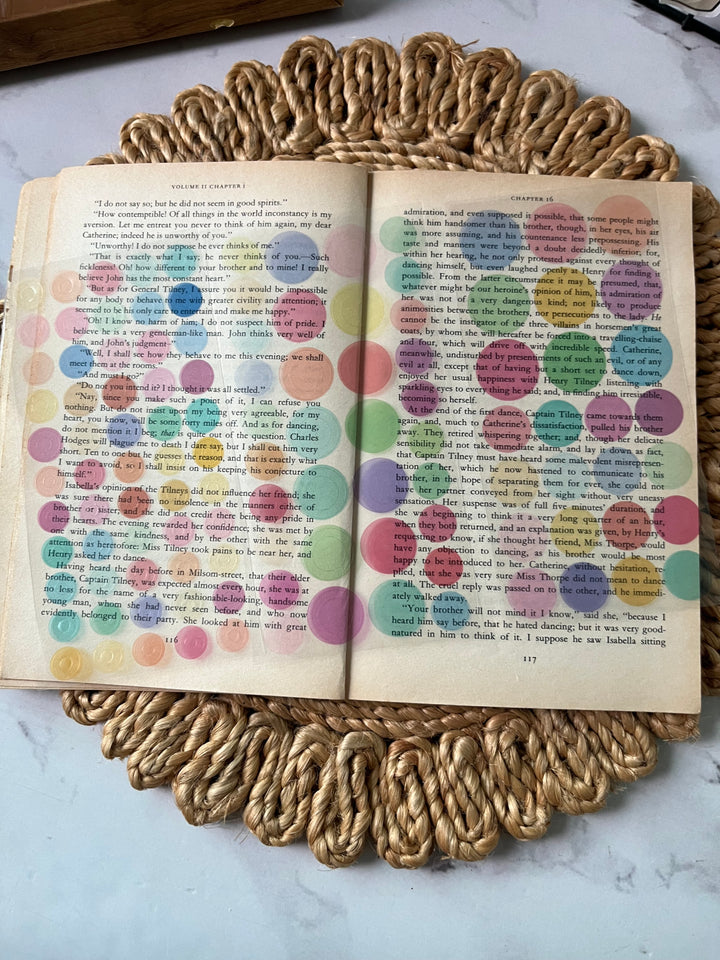 VOLUME II CHAPTER I
"I do not say so; but he did not seem in good spirits."
"How contemptible! Of all things in the world inconstancy is my
aversion. Let me entreat you never to think of him again, my dear
Catherine; indeed he is unworthy of you."
"Unworthy! I do not suppose he ever thinks of me."
"That is exactly what I say; he never thinks of you.—Such
fickleness! Oh! how different to your brother and to mine! I really
believe John has the most constant heart."
"But as for General Tilney, I assure you it would be impossible
for any body to behave to me with greater civility and attention; it
seemed to be his only care to entertain and make me happy."
"Oh! I know no harm of him; I do not suspect him of pride. I
believe he is a very gentleman-like man. John thinks very well of
him, and John's judgment—"
"Well, I shall see how they behave to me this evening; we shall
meet them at the rooms."
"And must I go?"
"Do not you intend it? I thought it was all settled."
"Nay, since you make such a point of it, I can refuse you
nothing. But do not insist upon my being very agreeable, for my
heart, you know, will be some forty miles off. And as for dancing,
do not mention it I beg; that is quite out of the question. Charles
Hodges will plague me to death I dare say; but I shall cut him very
short. Ten to one but he guesses the reason, and that is exactly what
I want to avoid, so I shall insist on his keeping his conjecture to
himself."
Isabella's opinion of the Tilneys did not influence her friend; she
was sure there had been no insolence in the manners either of
brother or sister; and she did not credit there being any pride in
their hearts. The evening rewarded her confidence; she was met by
one with the same kindness, and by the other with the same
attention as heretofore: Miss Tilney took pains to be near her, and
Henry asked her to dance.
Having heard the day before in Milsom-street, that their elder
brother, Captain Tilney, was expected almost every hour, she was at
no loss for the name of a very fashionable-looking, handsome
young man, whom she had never seen before, and who now
evidently belonged to their party. She looked at him with great
116
CHAPTER 16
admiration, and even supposed it possible, that some people might
think him handsomer than his brother, though, in her eyes, his air
was more assuming, and his countenance less prepossessing. His
taste and manners were beyond a doubt decidedly inferior; for,
within her hearing, he not only protested against every thought of
dancing himself, but even laughed openly at Henry for finding it
possible. From the latter circumstance it may be presumed, that,
whatever might be our heroine's opinion of him, his admiration of
her was not of a very dangerous kind; not likely to produce
animosities between the brothers, nor persecutions to the lady. He
cannot be the instigator of the three villains in horsemen's great
coats, by whom she will hereafter be forced into a travelling-chaise
and four, which will drive off with incredible speed. Catherine,
meanwhile, undisturbed by presentiments of such an evil, or of any
evil at all, except that of having but a short set to dance down,
enjoyed her usual happiness with Henry Tilney, listening with
sparkling eyes to every thing he said; and, in finding him irresistible,
becoming so herself.
At the end of the first dance, Captain Tilney came towards them
again, and, much to Catherine's dissatisfaction, pulled his brother
away. They retired whispering together; and, though her delicate
sensibility did not take immediate alarm, and lay it down as fact,
that Captain Tilney must have heard some malevolent misrepresen-
tation of her, which he now hastened to communicate to his
brother, in the hope of separating them for ever, she could not
have her partner conveyed from her sight without very uneasy
sensations. Her suspense was of full five minutes' duration; and
she was beginning to think it a very long quarter of an hour,
when they both returned, and an explanation was given, by Henry's
requesting to know, if she thought her friend, Miss Thorpe, would
have any objection to dancing, as his brother would be most
happy to be introduced to her. Catherine, without hesitation, re-
plied, that she was very sure Miss Thorpe did not mean to dance
at all. The cruel reply was passed on to the other, and he immedi-
ately walked away.
"Your brother will not mind it I know," said she, "because I
heard him say before, that he hated dancing; but it was very good-
natured in him to think of it. I suppose he saw Isabella sitting
117